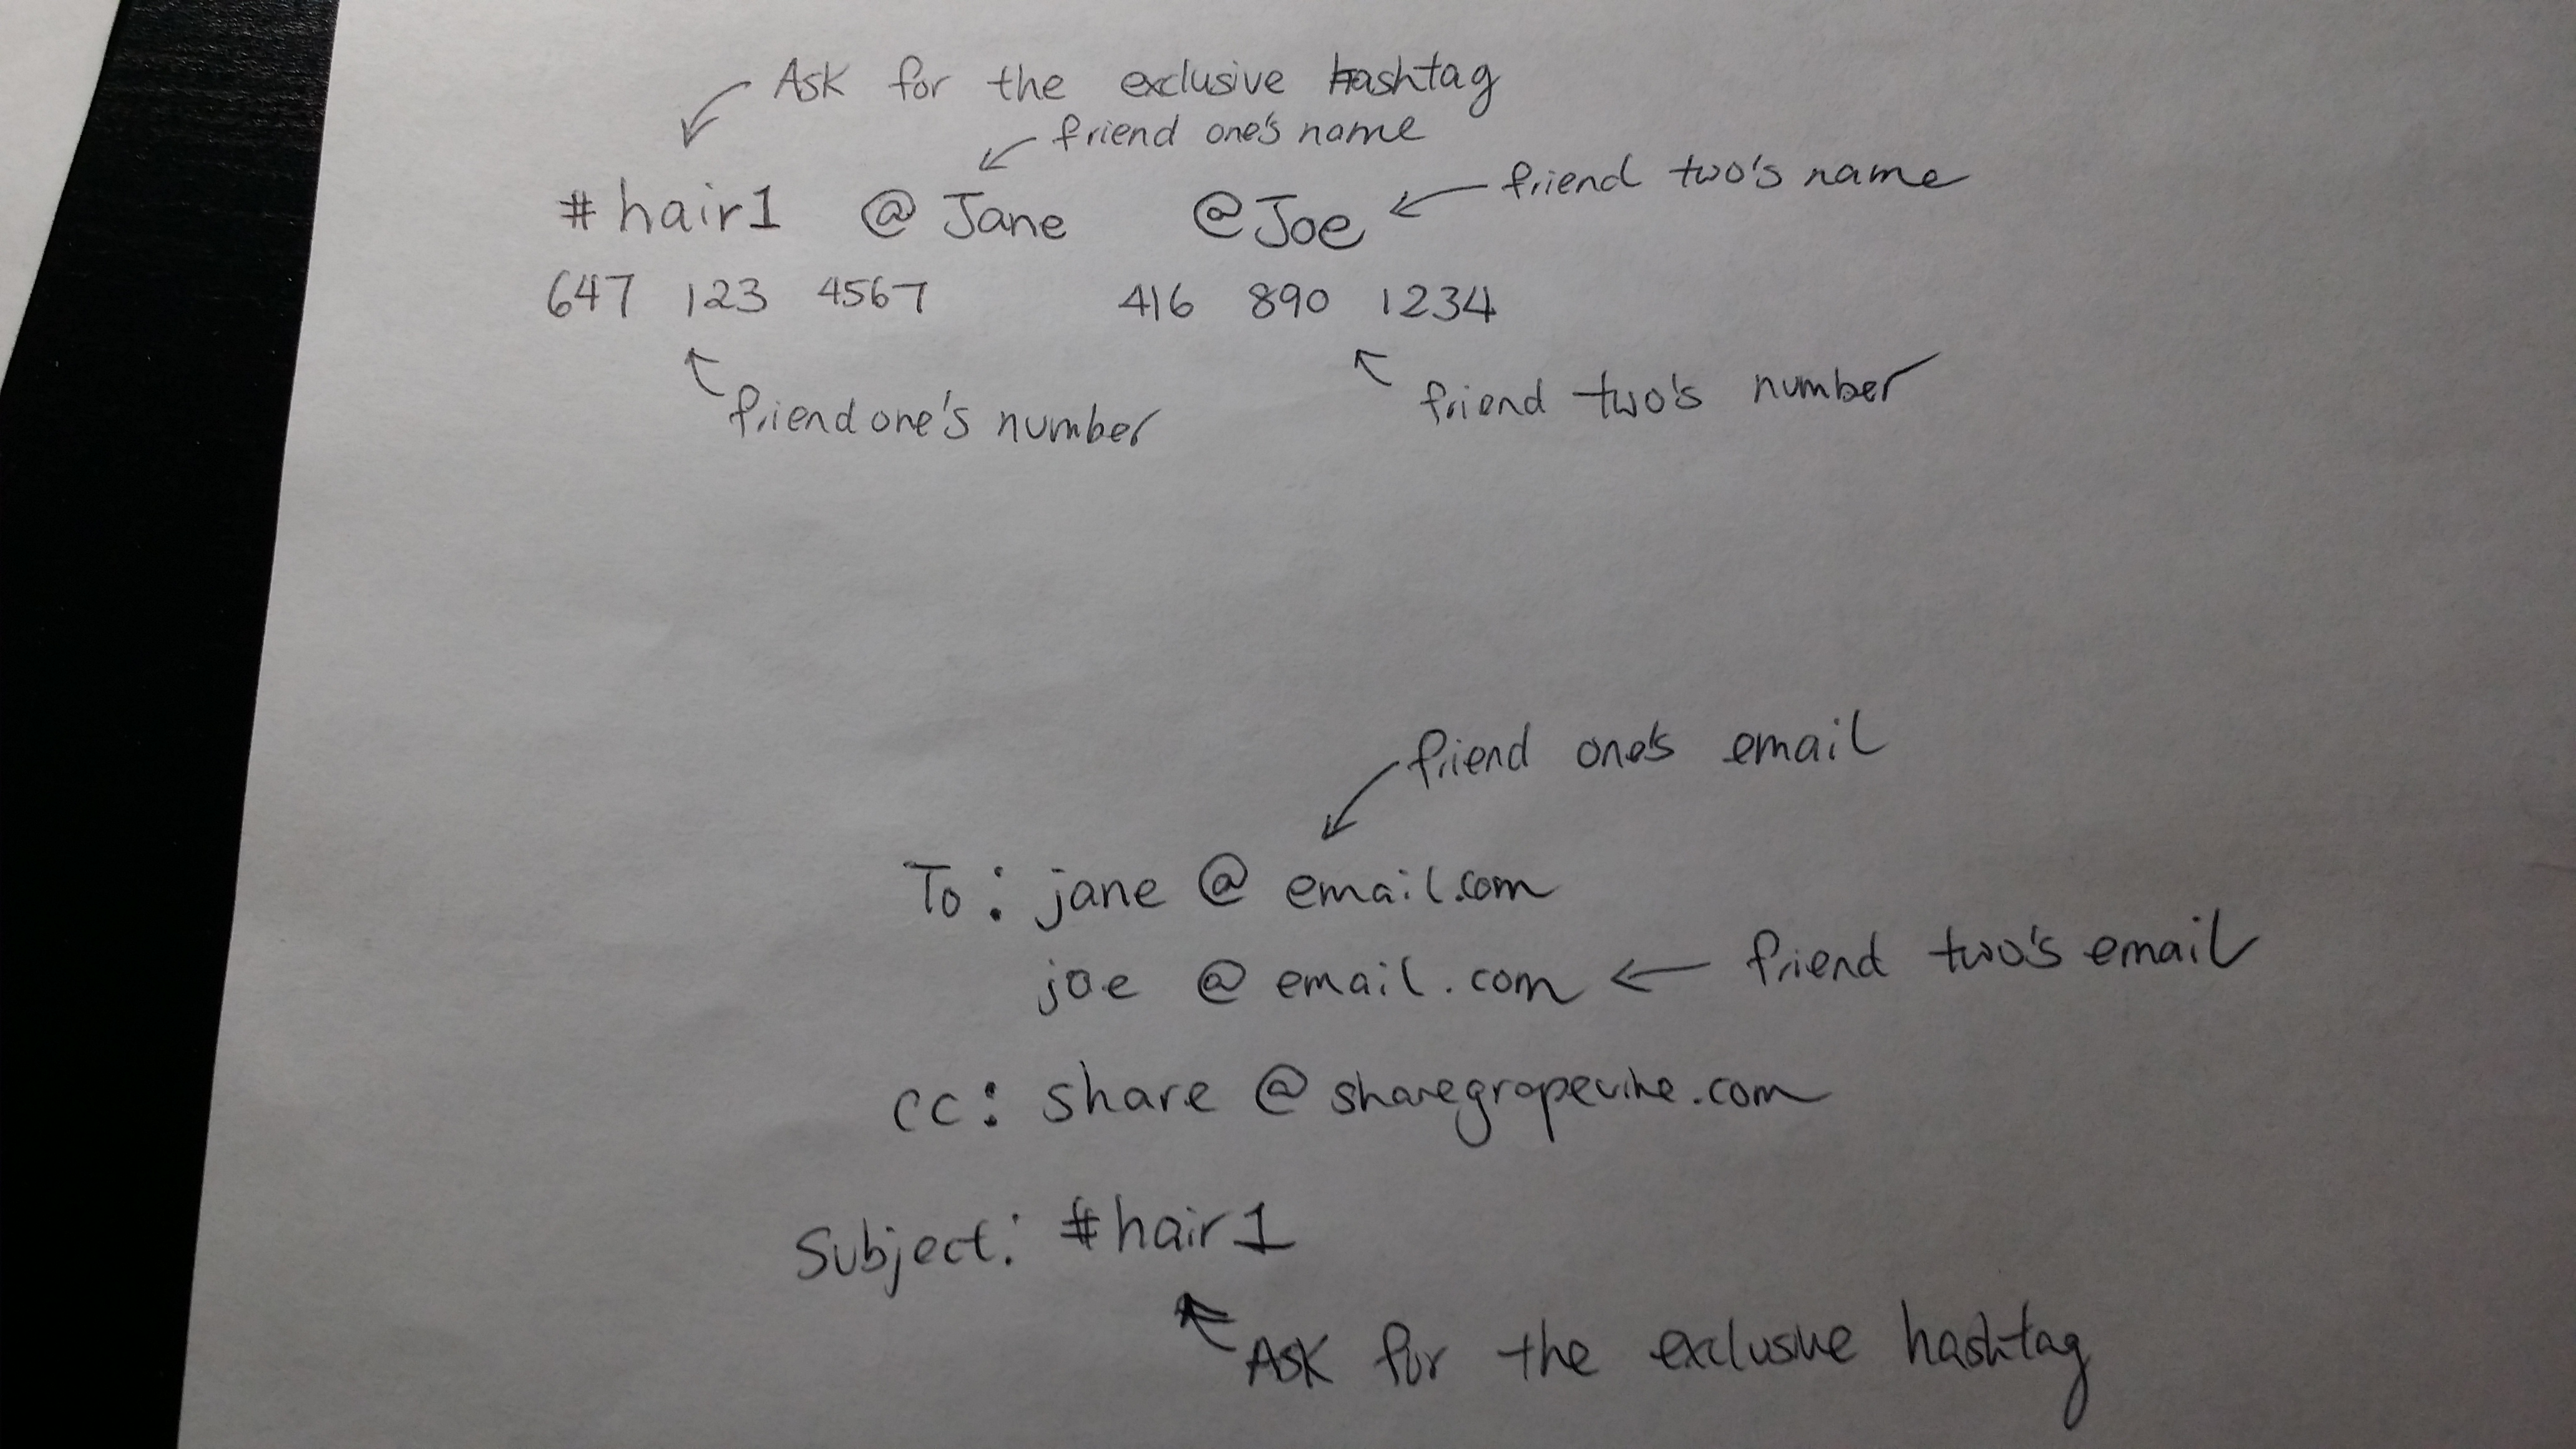 Ask for the exclusive hashtag
friend one's name
#hair1 @Jane @Joe friend two's name
647 123 4567 416 890 1234
friend one's number friend two's number
friend one's email
To: jane@email.com
joe@email.com friend two's email
cc: share@sharegrapevine.com
Subject: #hair1
Ask for the exclusive hashtag